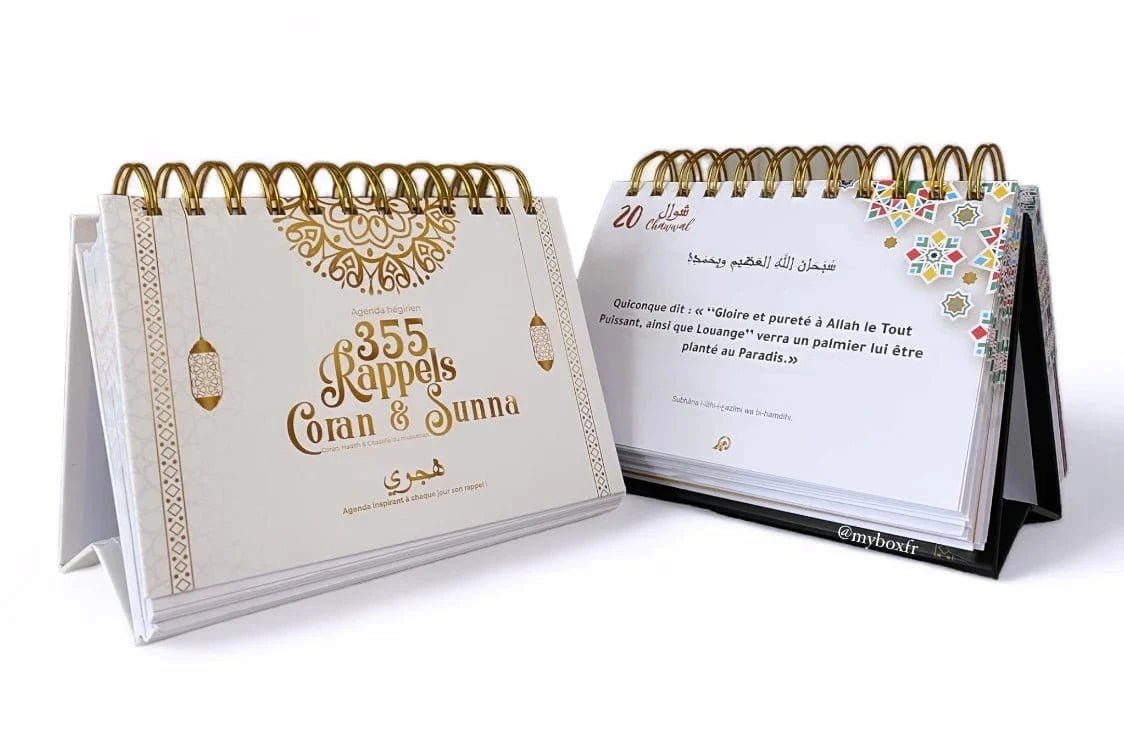 Agenda hégirien
355
Rappels
Coran & Sunna
Coran, Hadith & Citadelle du musulman
هجري
Agenda inspirant à chaque jour son rappel !
20 شوال
Chawwal
سُبْحَانَ اللَّهِ العَظِيمِ وبِحَمْدِهِ
Quiconque dit : « ‘‘Gloire et pureté à Allah le Tout
Puissant, ainsi que Louange’’ verra un palmier lui être
planté au Paradis.»
@myboxfr